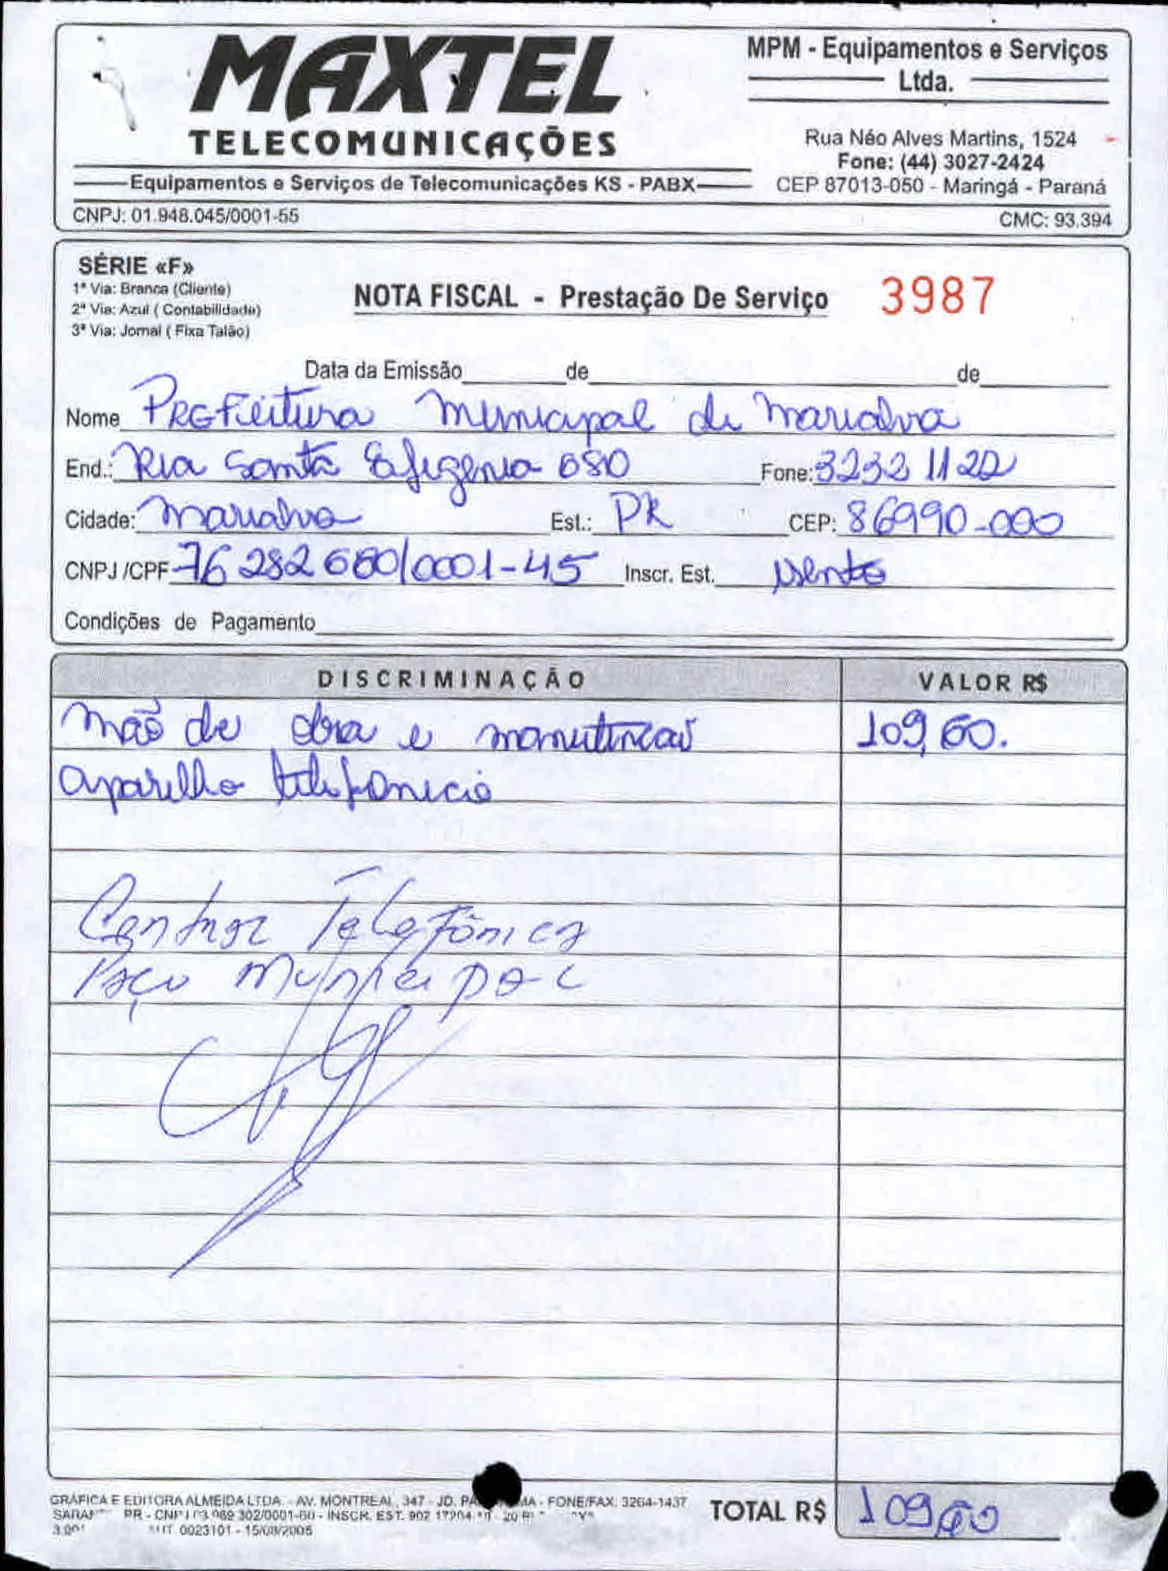 MAXTEL
TELECOMUNICAÇÕES
Equipamentos e Serviços de Telecomunicações KS - PABX
CNPJ: 01.948.045/0001-55
MPM - Equipamentos e Serviços
Ltda.
Rua Néo Alves Martins, 1524
Fone: (44) 3027-2424
CEP 87013-050 - Maringá - Paraná
CMC: 93.394
SÉRIE «F»
1ª Via: Branca (Cliente)
2ª Via: Azul ( Contabilidade)
3ª Via: Jornal ( Fixa Talão)
NOTA FISCAL - Prestação De Serviço 3987
Data da Emissão de de
Nome Prefeitura Municipal de Marialva
End.: Rua Santa Efigenia 680 Fone: 3232 1122
Cidade: Marialva Est.: PR CEP: 86990-000
CNPJ /CPF 76 282 680/0001-45 Inscr. Est. isento
Condições de Pagamento
DISCRIMINAÇÃO VALOR R$
Mão de obra e manutencao 109,60.
aparelho telefonicio
Central Telefônica
Paço Municipal
GRÁFICA E EDITORA ALMEIDA LTDA. - AV. MONTREAL, 347 - JD. - FONE/FAX. 3264-1437
PR - 302/0001-60 - INSCR. EST. 902
0023101 - 15/08/2005
TOTAL R$ 109,60